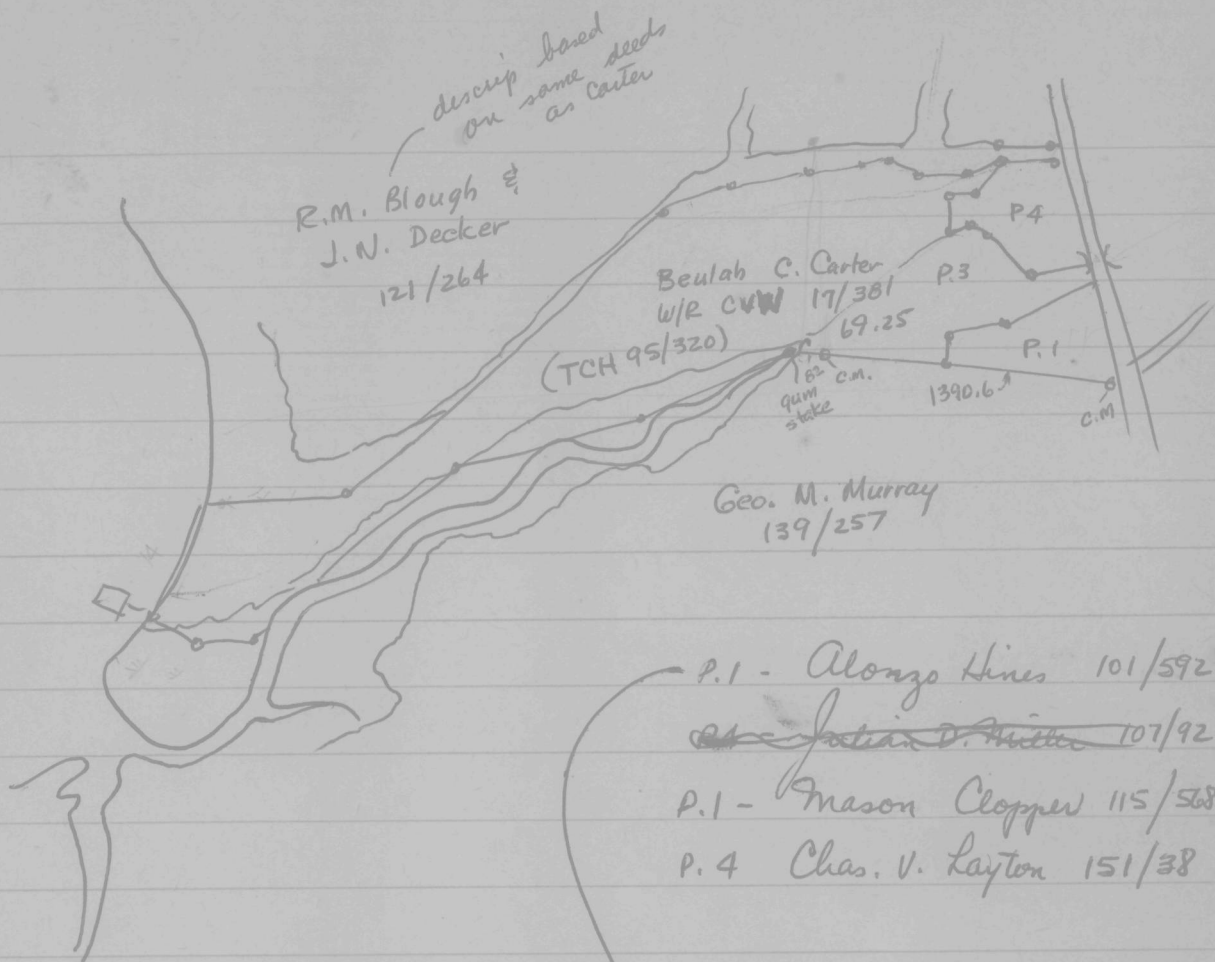 descrip based
on same deeds
as Carter
R.M. Blough &
J.N. Decker
121/264
Beulah C. Carter
W/R CWW 17/381
69.25
(TCH 95/320)
P.4
P.3
P.1
C.M.
gum
stake
1390.6
C.M
Geo. M. Murray
139/257
P.1 - Alonzo Hines 101/592
Julian D. 107/92
P.1 - Mason Clopper 115/568
P. 4 Chas. V. Layton 151/38